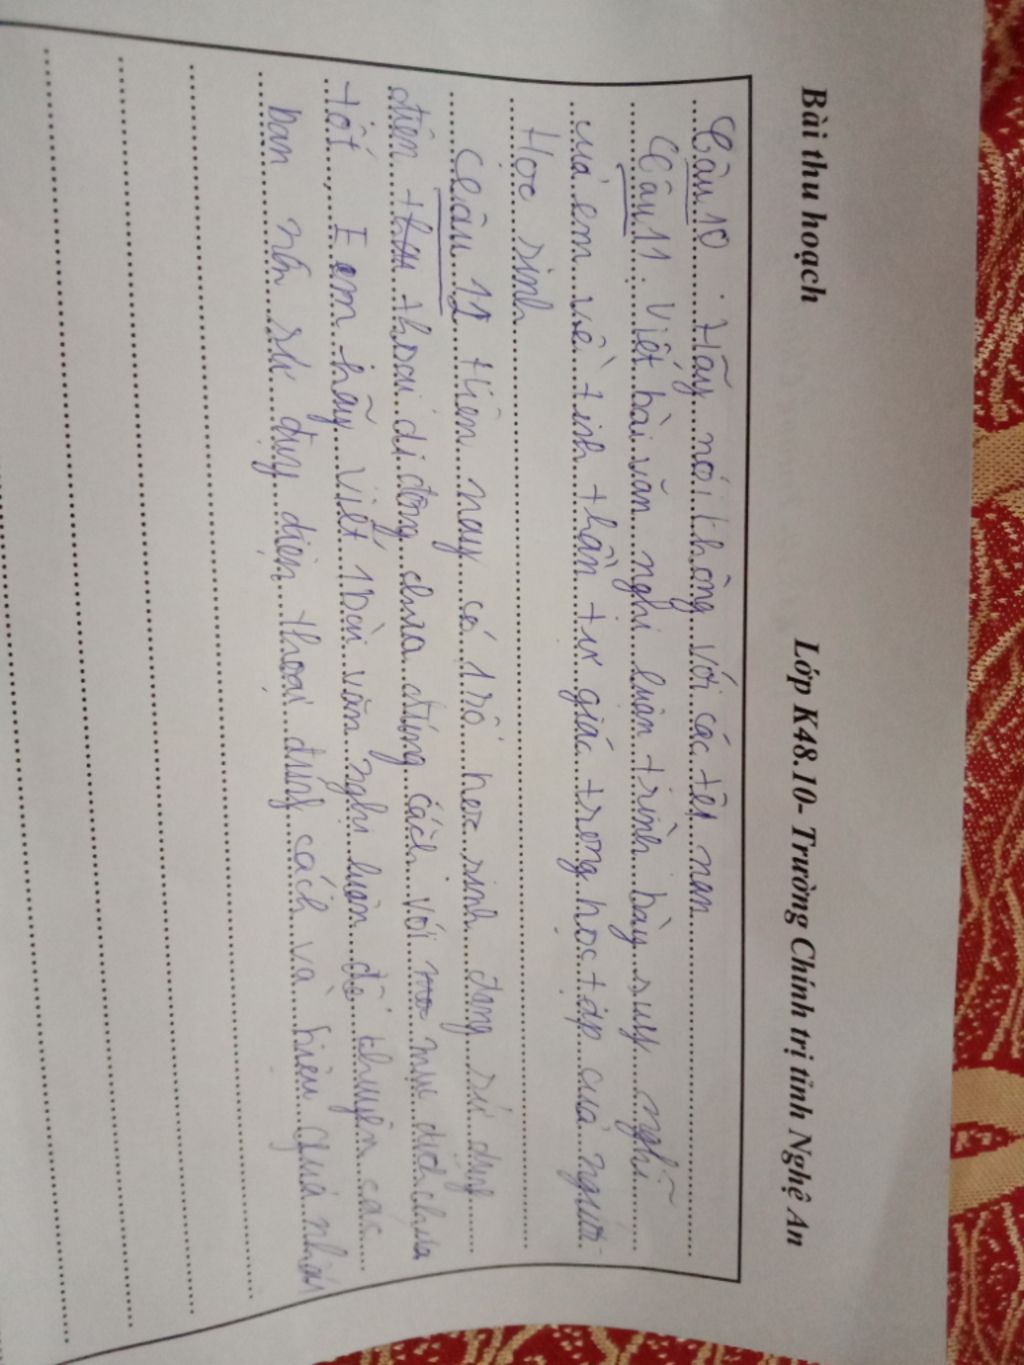 Bài thu hoạch Lớp K48.10- Trường Chính trị tỉnh Nghệ An
Câu 10. Hãy nói không với các tệ nạn
Câu 11. Viết bài văn nghị luận trình bày suy nghĩ
của em về tinh thần tự giác trong học tập của người
Học sinh
Câu 12 Hiện nay có 1 số học sinh đang sử dụng
điện thoại di động chưa đúng cách với mục đích chưa
tốt, Em hãy viết 1 bài văn nghị luận để thuyên các
bạn nên sử dụng điện thoại đúng cách và hiệu quả nhất